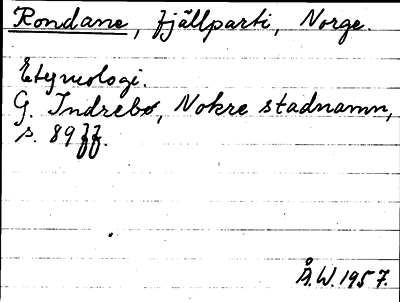 Rondane, fjällparti, Norge.
Etymologi.
G. Indrebø, Nokre stadnamn,
s. 89 ff.
Å.W. 1957.